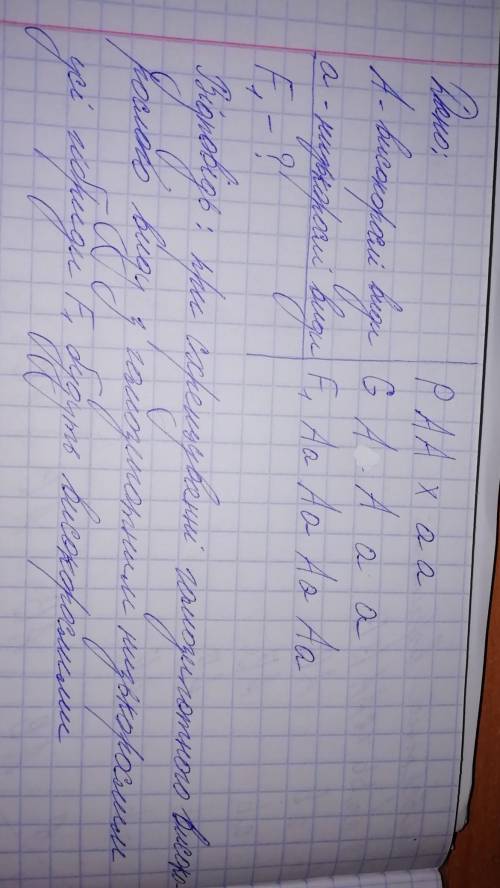 Дано:
А - високорослі види
а - низькорослі види
F₁ - ?
P AA x aa
G A A a a
F₁ Aa Aa Aa Aa
Відповідь: при схрещуванні гомозиготного високо-
рослого виду з гомозиготним низькорослим
усі гібриди F₁ будуть високорослими